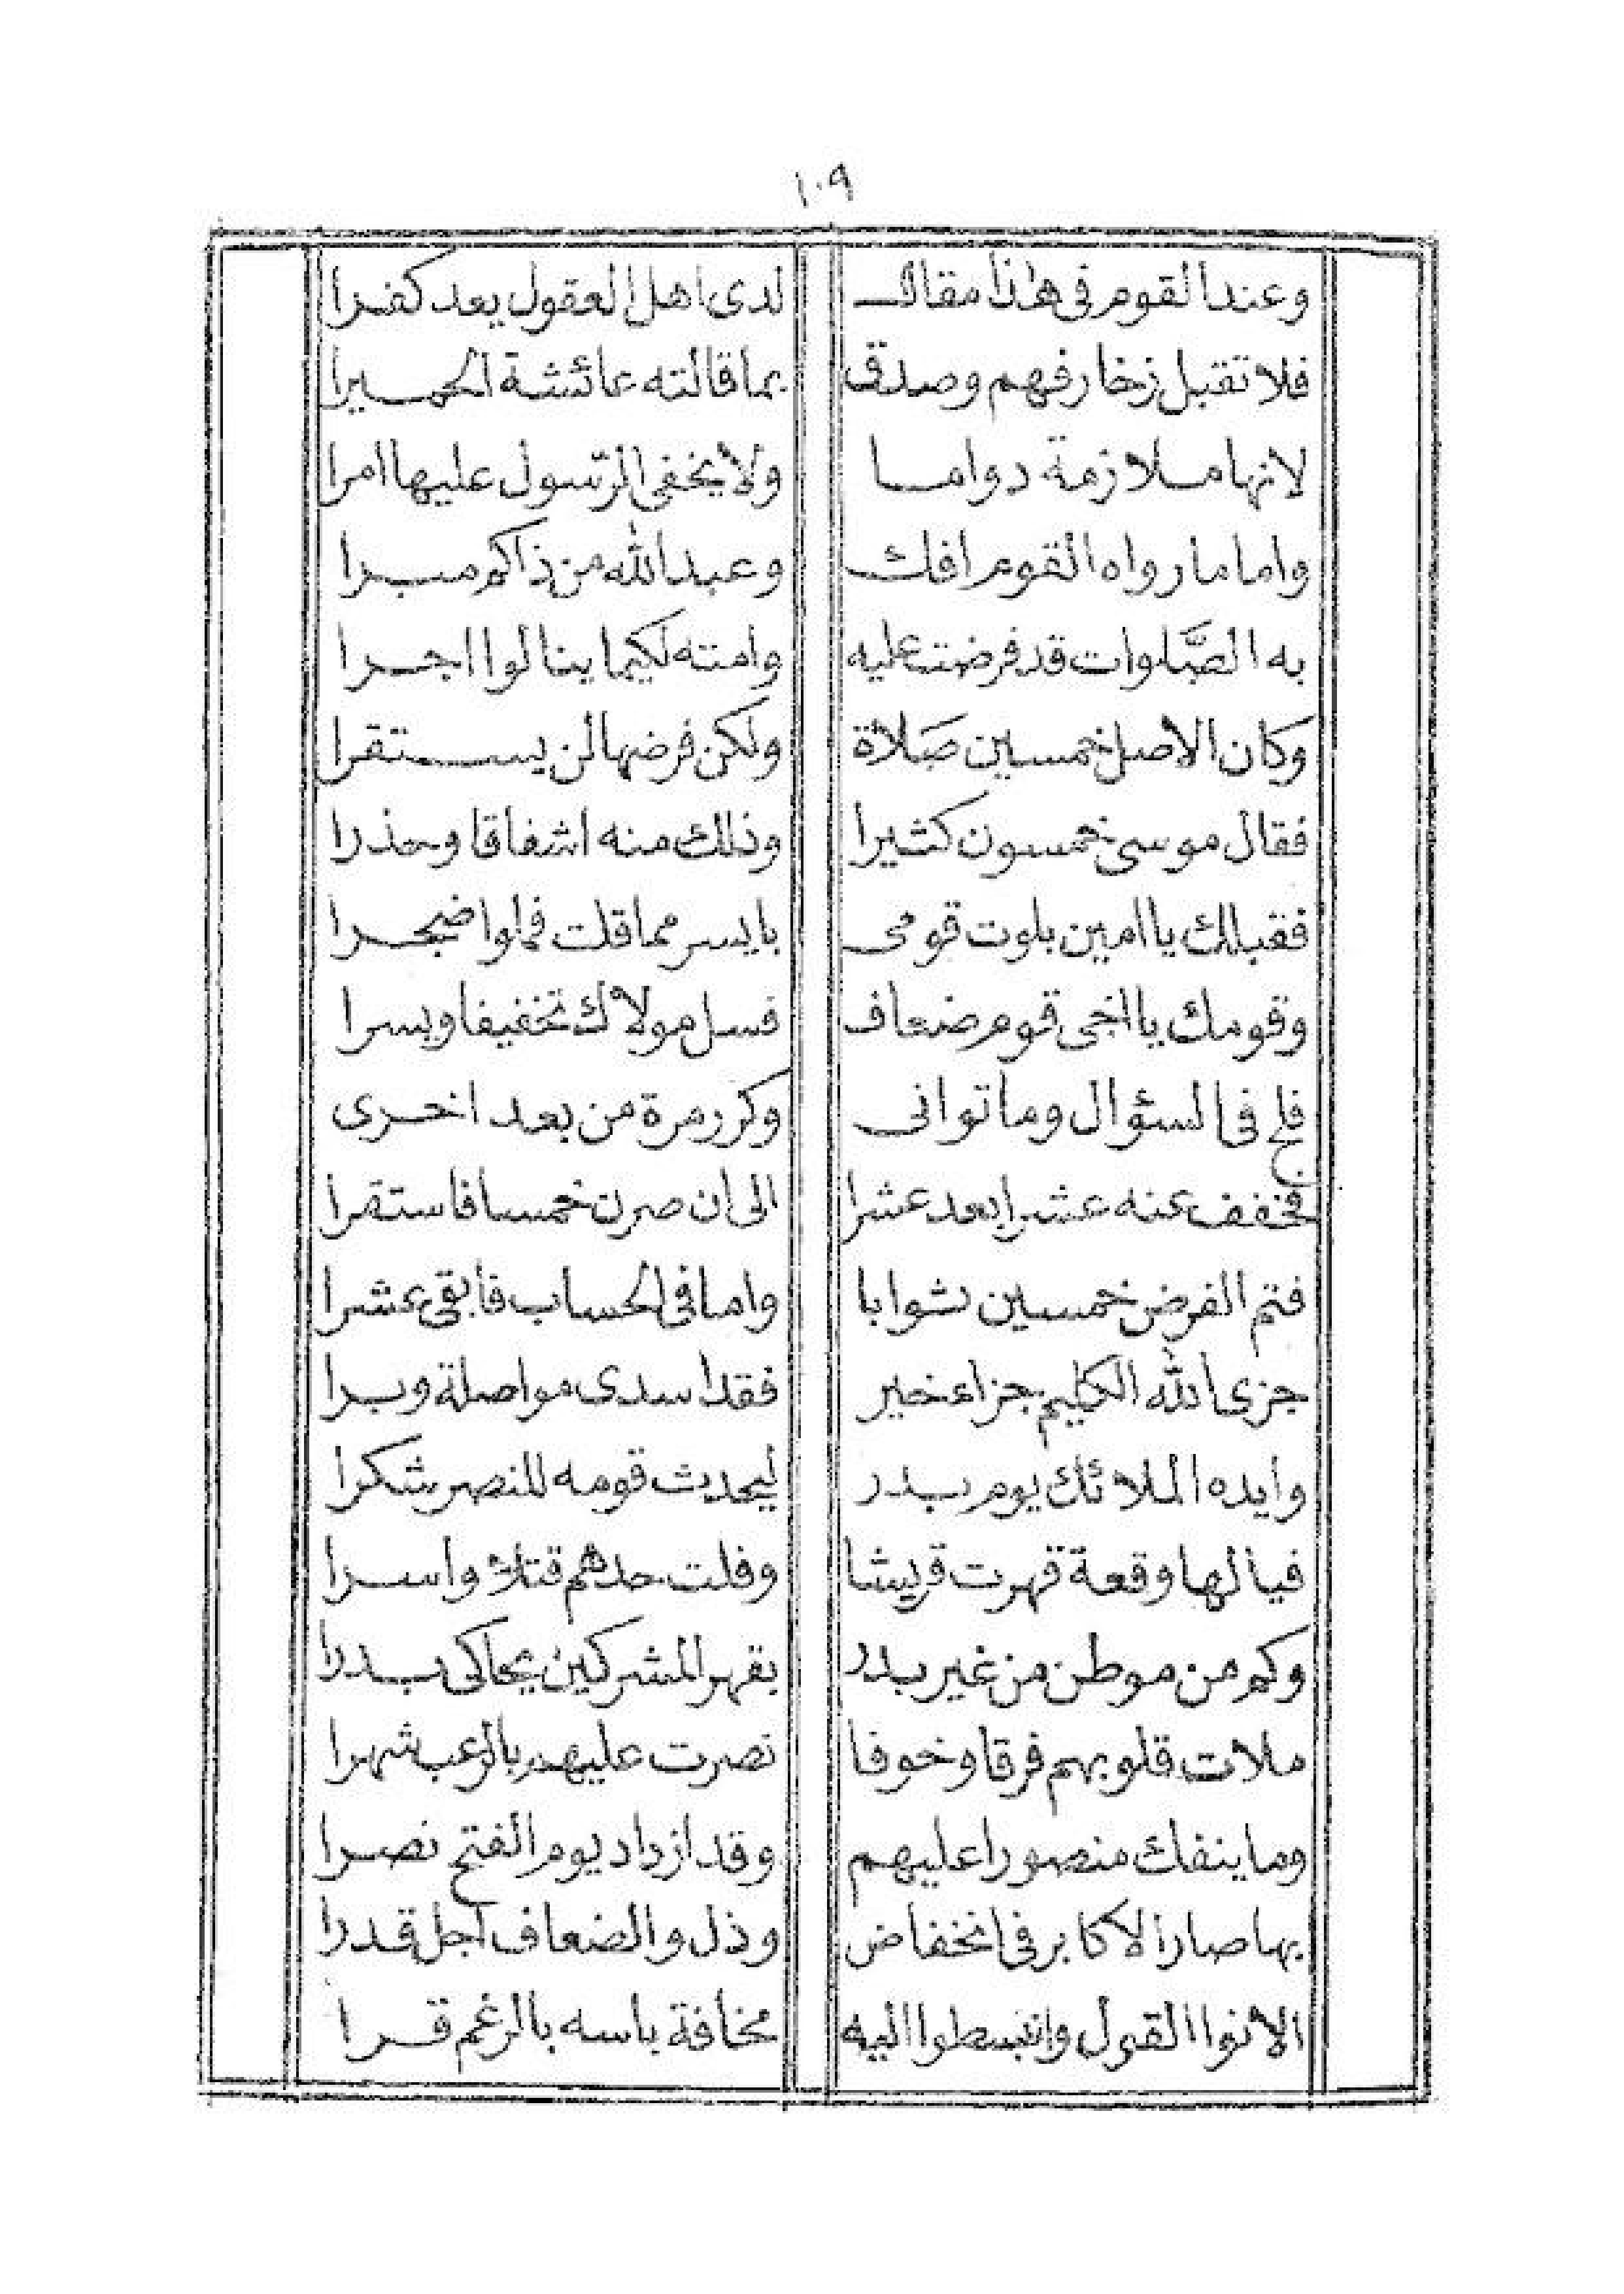 ١٠٩
وعند القوم فى هذا مقال لدى اهل العقول يعد كفرا
فلا تقبل زخارفهم وصدق بما قالته عائشة الحميرا
لانها ملازمة دواما ولا يخفى الرّسول عليها امرا
واما ما رواه القوم افك وعبد الله من ذاكم مبرا
به الصَّلوات قد فرضت عليه وامته لكيما ينالوا اجرا
وكان الاصل خمسين صَلاة ولكن فرضها لن يستقرا
فقال موسى خمسون كثيرا وذلك منه اشفاقا وحذرا
فقبلك يا امين بلوت قومى بايسر مما قلت فملوا ضجرا
وقومك يا اخى قوم ضعاف فسل مولاك تخفيفا ويسرا
فلح فى السئوال وما توانى وكرر مرة من بعد اخرى
فخفف عنه عشرا بعد عشرا الى ان صرن خمسا فاستقرا
فتم الفرض خمسين ثوابا واما فى الحساب فابقى عشرا
جزى الله الكليم جزاء خير فقد اسدى مواصلة وبرا
وايده الملائك يوم بدر ليحدث قومه للنصر شكرا
فيا لها وقعة قهرت قريشا وفلت حدهم قتلا واسرا
وكم من موطن من غير بدر بقهر المشركين يحاكى بدرا
ملات قلوبهم فرقا وخوفا نصرت عليهم بالرعب شهرا
وما ينفك منصورا عليهم وقد ازداد يوم الفتح نصرا
بها صار الاكابر فى انخفاض وذل والضعاف اجل قدرا
الانوا القول وانبسطوا اليه مخافة باسه بالرغم قرا